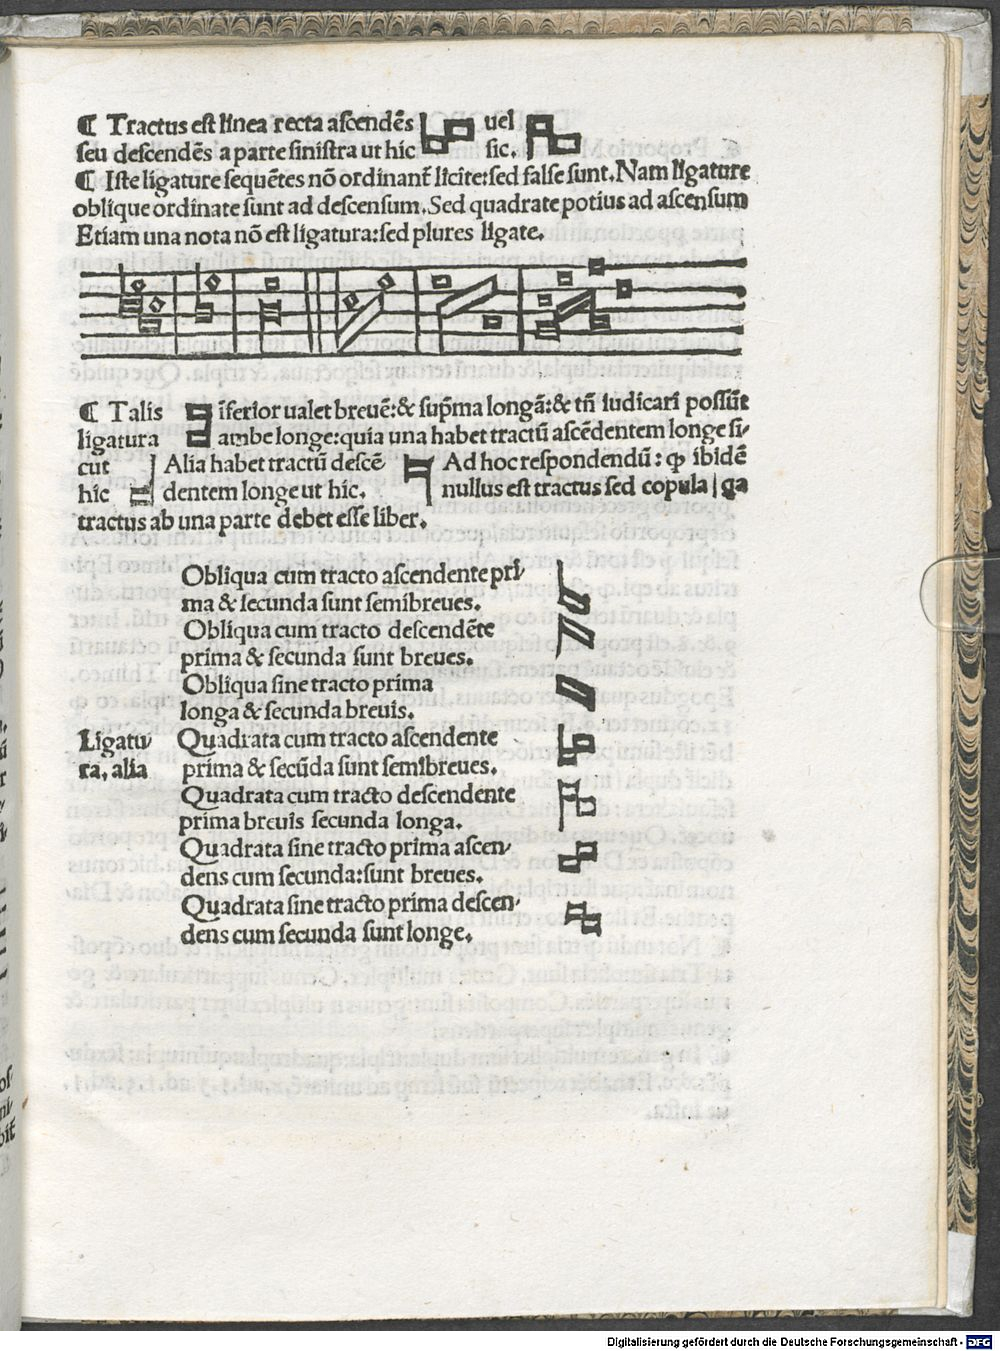 ¶ Tractus est linea recta ascendẽs uel
seu descendẽs a parte sinistra ut hic sic.
¶ Iste ligature sequẽtes nõ ordinanť licite:sed false sunt. Nam ligature
oblique ordinate sunt ad descensum. Sed quadrate potius ad ascensum
Etiam una nota nõ est ligatura:sed plures ligate.
¶ Talis ĩferior ualet breuẽ:& sup̃ma longã:& tñ iudicari possũt
ligatura ambe longe:quia una habet tractũ ascẽdentem longe si-
cut Alia habet tractũ descẽ- Ad hoc respondendũ: ꝙ ibidẽ
hic dentem longe ut hic. nullus est tractus sed copula | ꝗa
tractus ab una parte debet esse liber.
Obliqua cum tracto ascendente pri-
ma & secunda sunt semibreues.
Obliqua cum tracto descendẽte
prima & secunda sunt breues.
Obliqua sine tracto prima
longa & secunda breuis.
Ligatu- Quadrata cum tracto ascendente
ra. alia prima & secũda sunt semibreues.
Quadrata cum tracto descendente
prima breuis secunda longa.
Quadrata sine tracto prima ascen-
dens cum secunda:sunt breues.
Quadrata sine tracto prima descen-
dens cum secunda sunt longe.
Digitalisierung gefördert durch die Deutsche Forschungsgemeinschaft - DFG